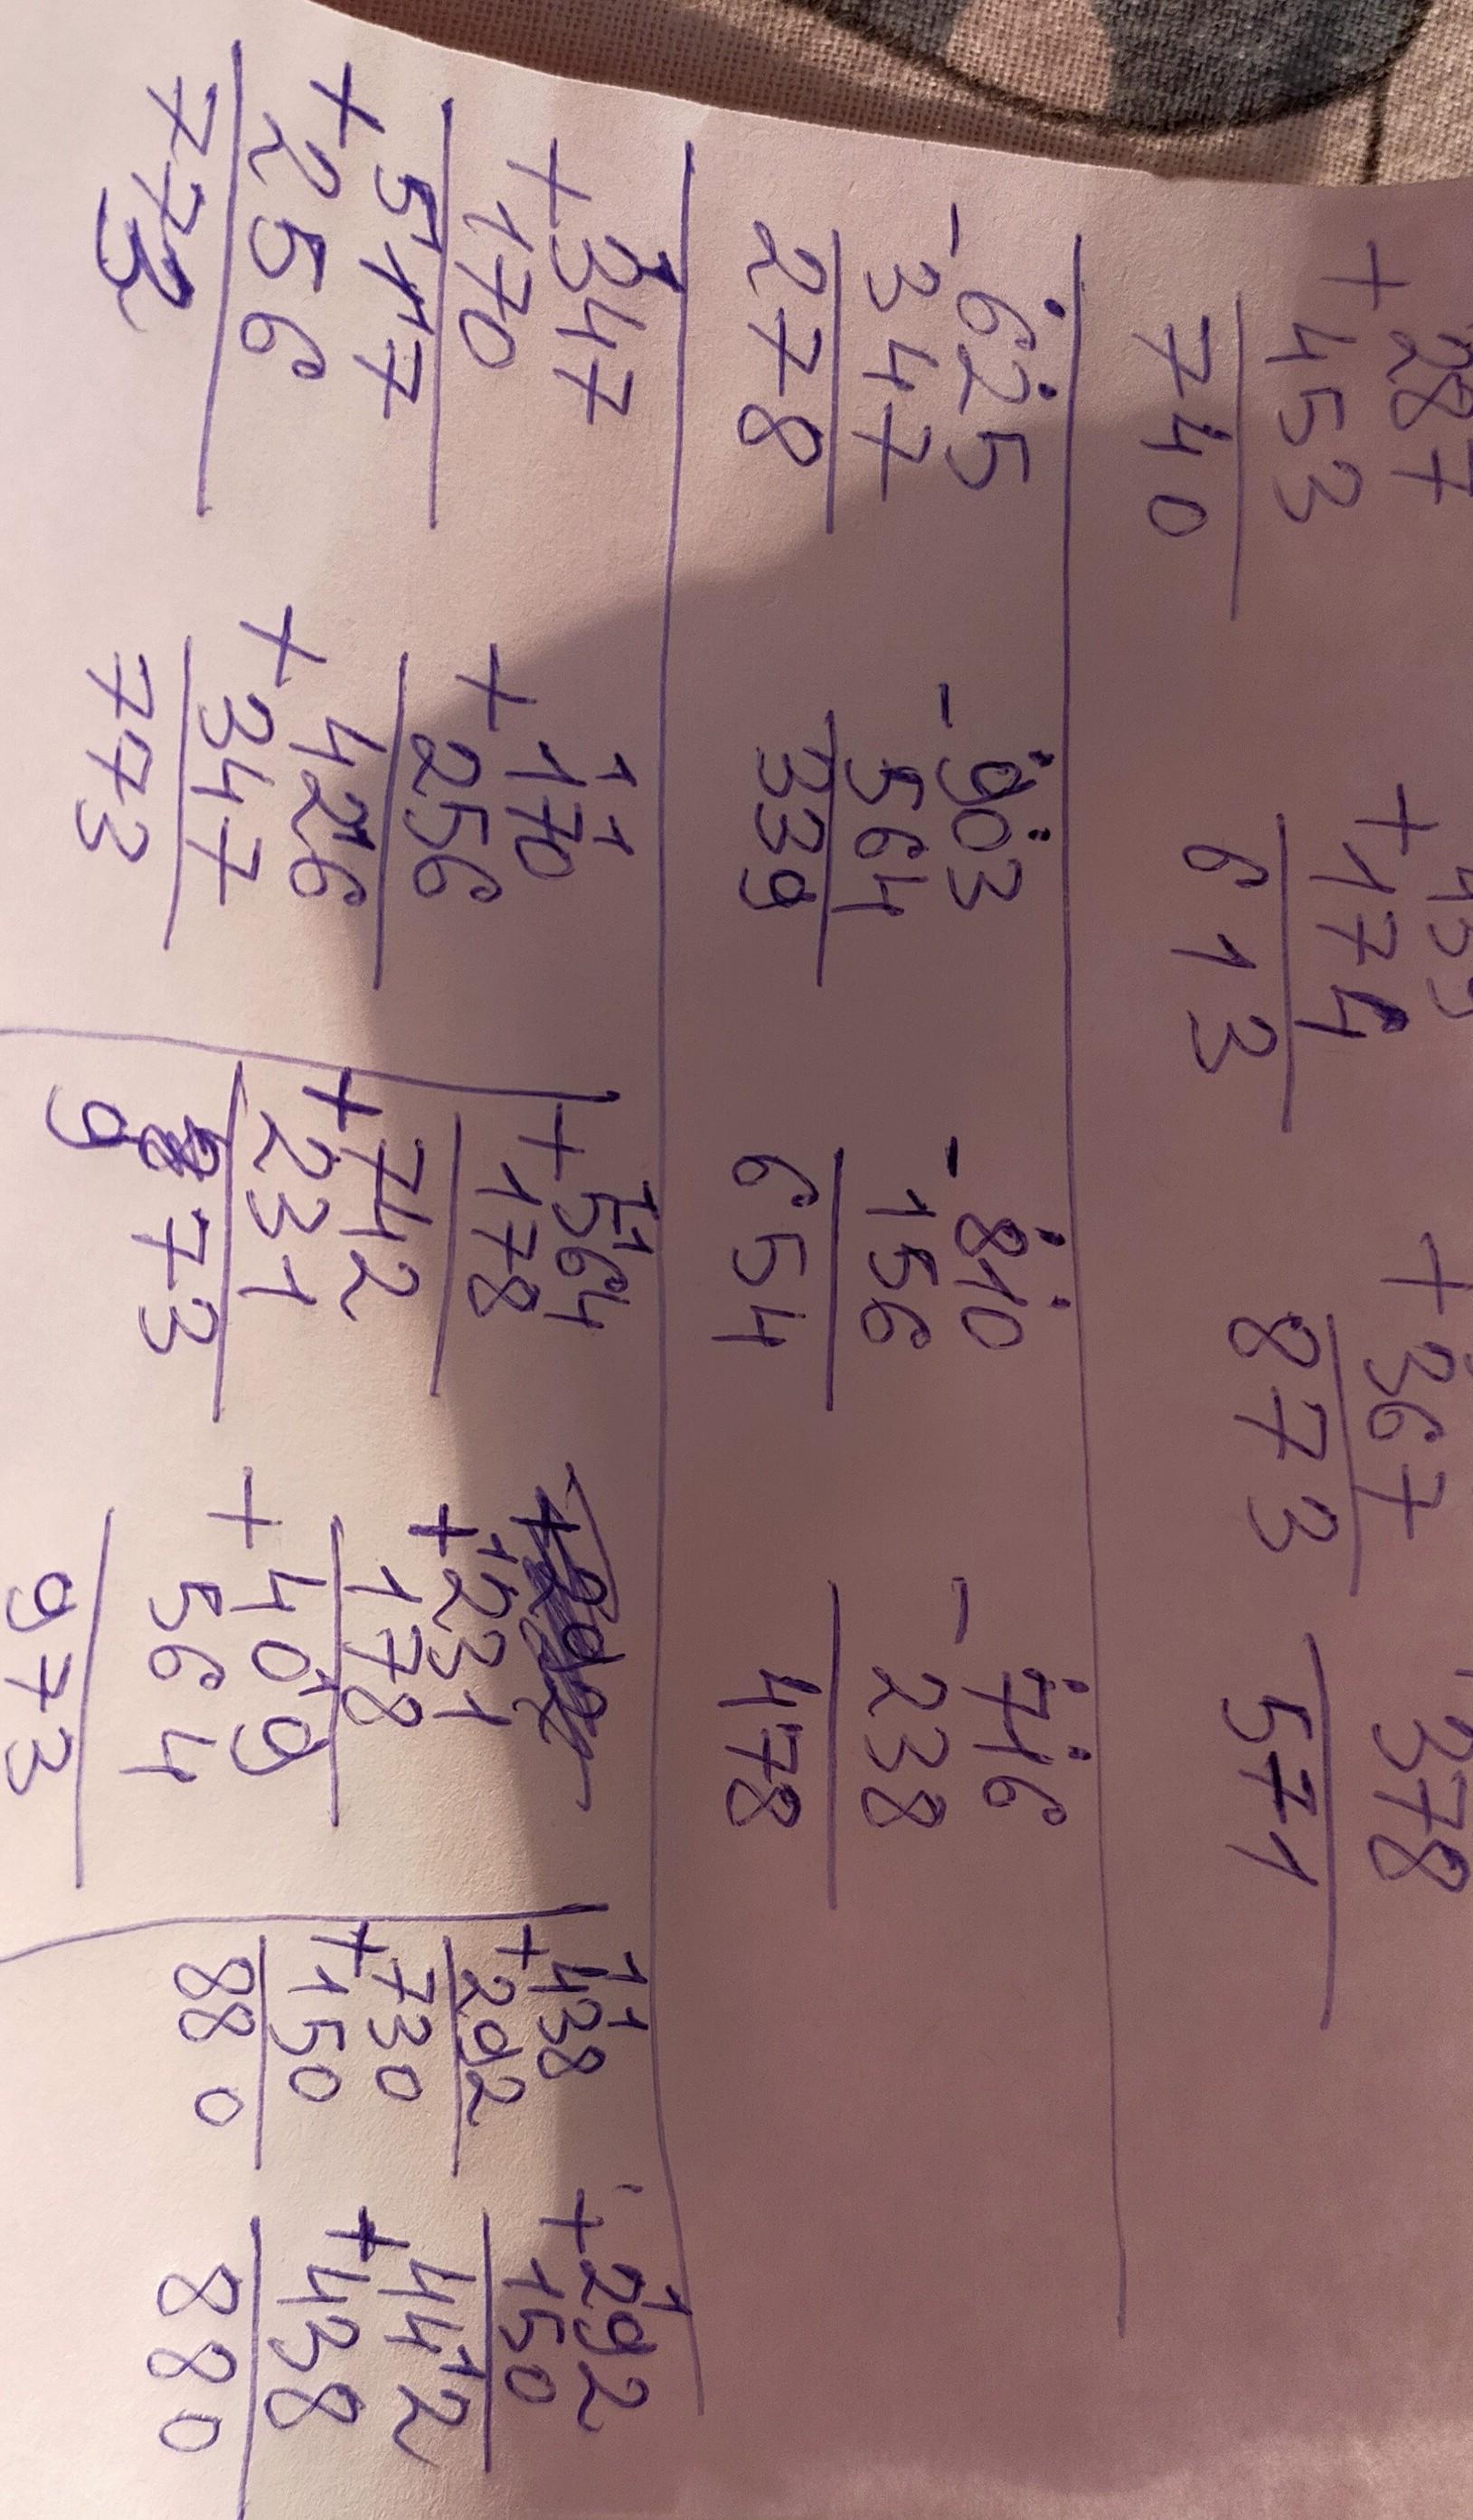 + 287
453
740
+ 174
613
+ 367
873
378
571
- 625
347
278
- 903
564
339
- 810
156
654
- 716
238
478
1
+ 347
170
+ 517
256
773
1 1
+ 170
256
+ 426
347
773
1 1
+ 564
178
+ 742
231
973
1
+ 231
178
+ 409
564
973
1 1
+ 438
292
+ 730
150
880
1
+ 292
150
+ 442
438
880